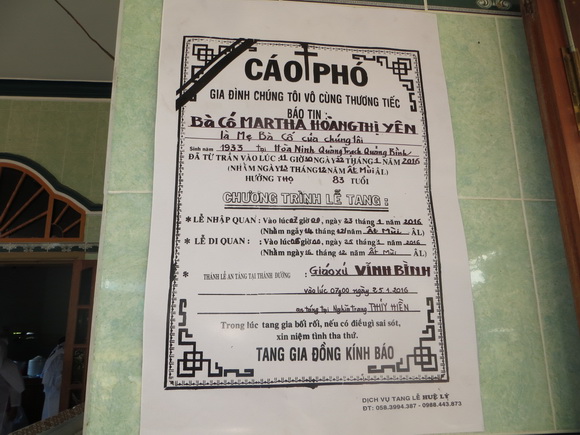 CÁO PHÓ
GIA ĐÌNH CHÚNG TÔI VÔ CÙNG THƯƠNG TIẾC
BÁO TIN :
BÀ CỐ MARTHA HOÀNG THỊ YÊN
là Mẹ Bà Cố của chúng tôi
Sinh năm 1933 tại Hòa Ninh Quảng Trạch Quảng Bình
ĐÃ TỪ TRẦN VÀO LÚC 11 GIỜ 20 NGÀY 22 THÁNG 1 NĂM 2016
(NHẰM NGÀY 12 THÁNG 12 NĂM ẤT MÙI ÂL)
HƯỞNG THỌ 83 TUỔI
CHƯƠNG TRÌNH LỄ TANG :
* LỄ NHẬP QUAN : Vào lúc 07 giờ 00, ngày 23 tháng 1 năm 2016
(Nhằm ngày 14 tháng 12 năm Ất Mùi ÂL)
* LỄ DI QUAN : Vào lúc 06 giờ 00, ngày 25 tháng 1 năm 2016
(Nhằm ngày 16 tháng 12 năm Ất Mùi ÂL)
* THÁNH LỄ AN TÁNG TẠI THÁNH ĐƯỜNG : Giáo xứ VĨNH BÌNH
vào lúc 07g00 ngày 25.1.2016
an táng tại Nghĩa Trang THỦY HIỀN
Trong lúc tang gia bối rối, nếu có điều gì sai sót,
xin niệm tình tha thứ.
TANG GIA ĐỒNG KÍNH BÁO
DỊCH VỤ TANG LỄ HUỆ LÝ
ĐT: 058.3994.367 - 0988.443.873